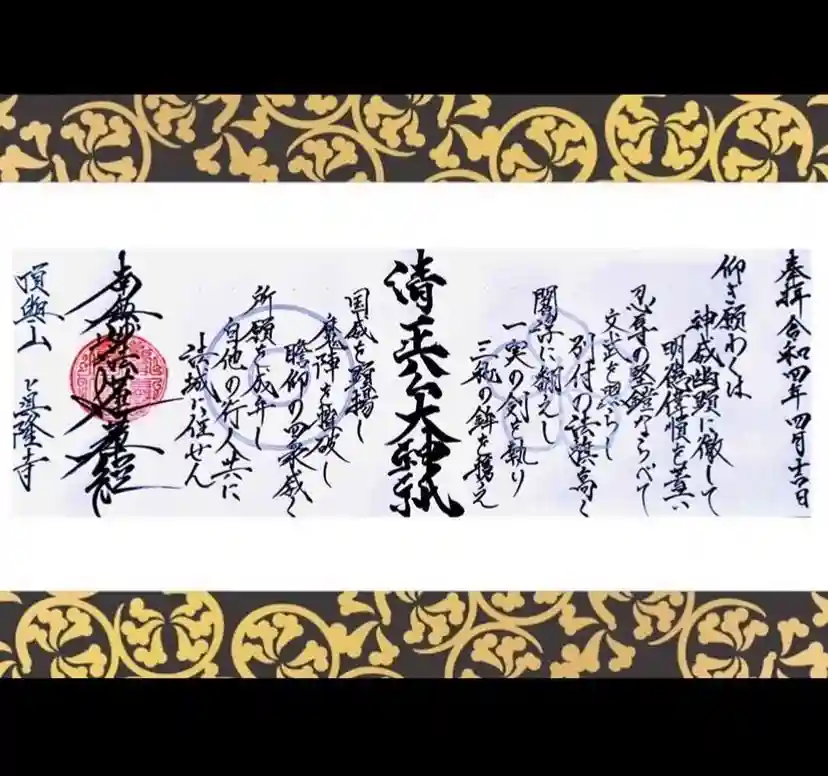 奉拝 令和四年四月吉日
仰ぎ願わくは
神威幽顕に徹して
明徳
忍辱の堅鎧ならべて
文武を照らし
別付の法旗高く
閻浮に翻えし
一実の剣を執り
三軌の鉾を携え
清正公大神祇
国威を顕揚し
魔陣を撃破し
瞻仰の四衆咸く
所願を成弁し
自他の行人共に
法城に住せん
南無妙法蓮華経
山 眞隆寺